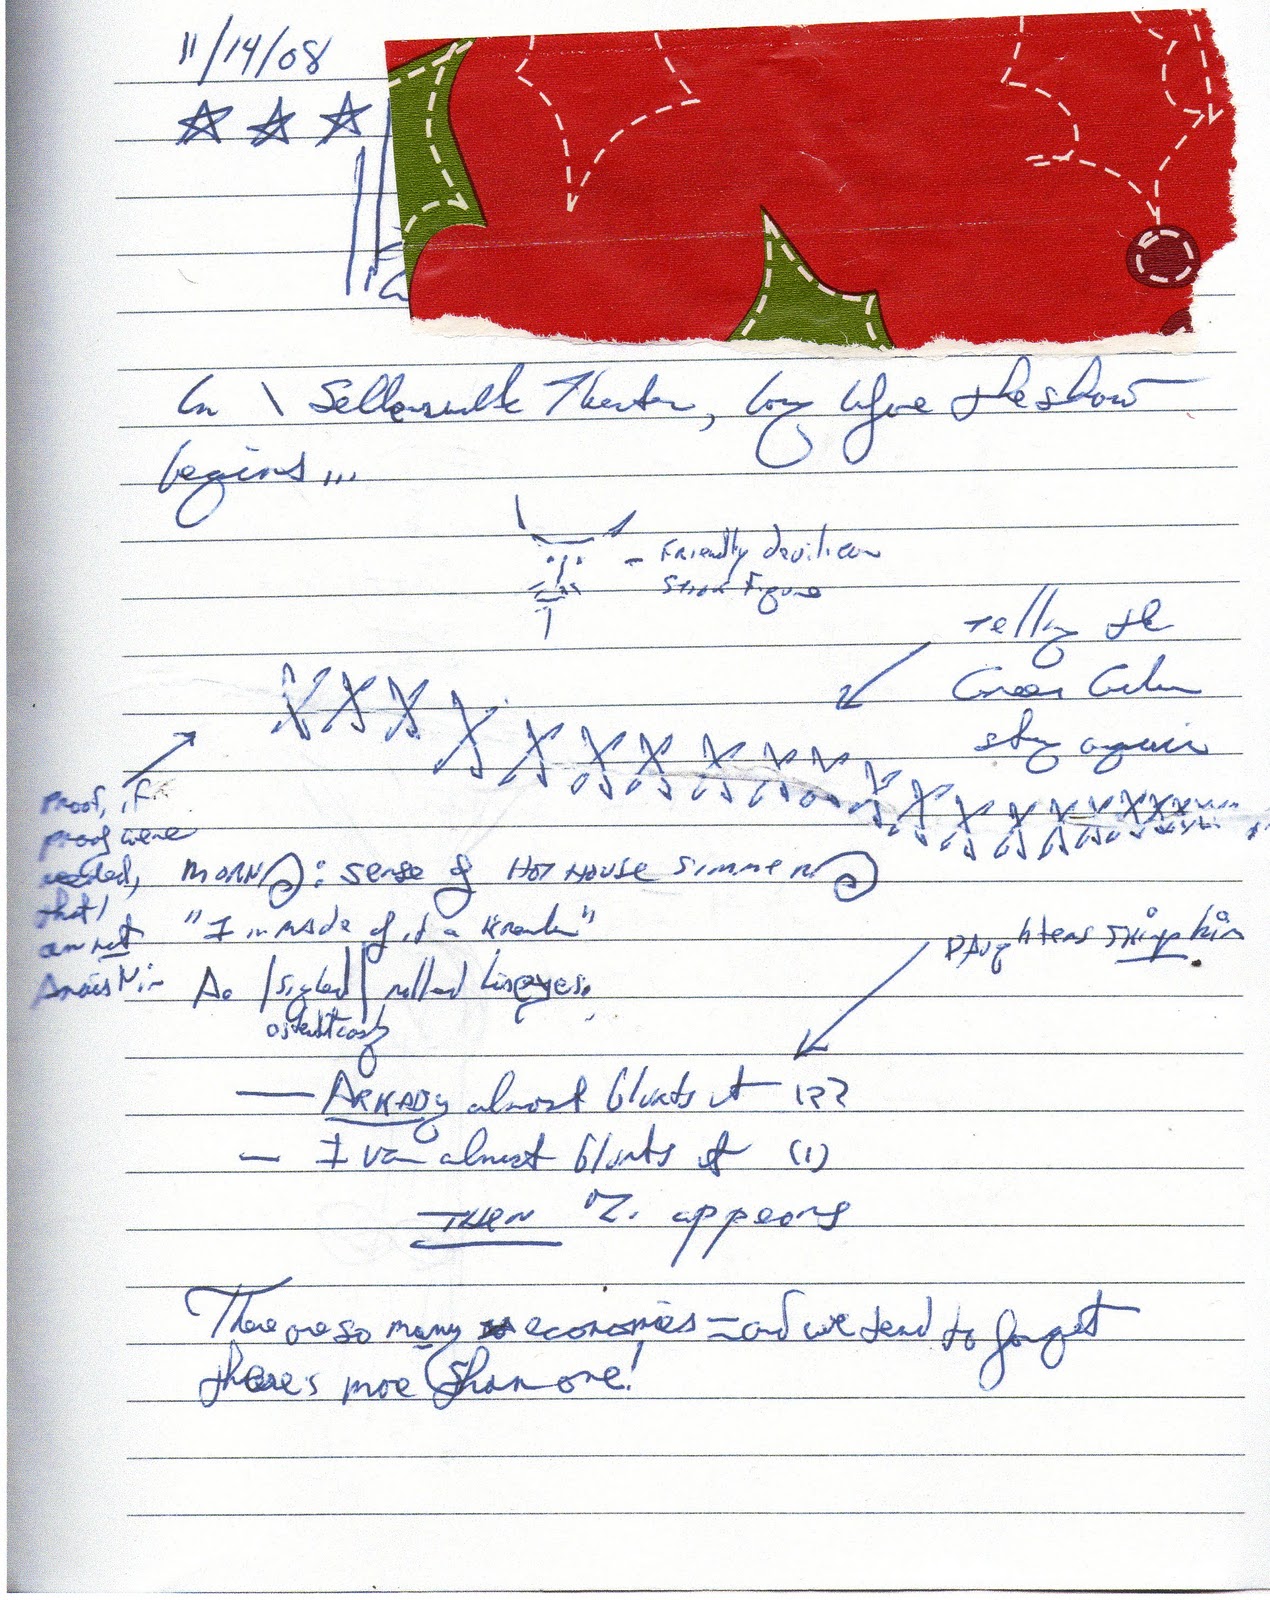 11/14/08
In \ Sellersville Theater, long before the show
begins...
- Friendly devilicon
Stick Figure
Telling the
story again
Proof, if
proof were
needed,
that I
am not
Anaïs Nin
MORN: sense of HOTHOUSE simmer
"I made of it a"
As |sighed| rolled eyes.
Daughters
- ARKADY almost blurts it
- Ivan almost blurts it (1)
THEN Z. appears
There are so many economies - and we tend to forget
there's more than one!